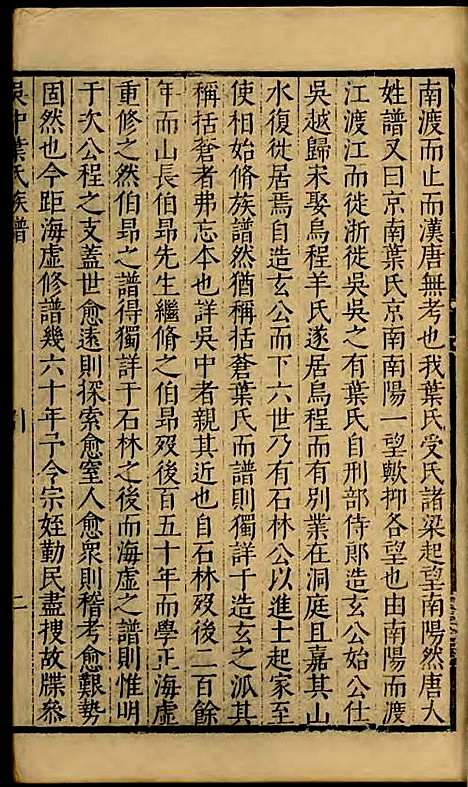 南渡而止而漢唐無考也我葉氏受氏諸梁起望南陽然唐人
姓譜又曰京南葉氏京南南陽一望歟抑各望也由南陽而渡
江渡江而徙浙徙吳吳之有葉氏自刑部侍郎造玄公始公仕
吳越歸宋娶烏程羊氏遂居烏程而有別業在洞庭且嘉其山
水復徙居焉自造玄公而下六世乃有石林公以進士起家至
使相始脩族譜然猶稱括蒼葉氏而譜則獨詳于造玄之派其
稱括蒼者弗忘本也詳吳中者親其近也自石林歿後二百餘
年而山長伯昂先生繼脩之伯昂歿後百五十年而學正海虛
重修之然伯昂之譜得獨詳于石林之後而海虛之譜則惟明
于次公程之支蓋世愈遠則探索愈窒人愈衆則稽考愈艱勢
固然也今距海虛修譜幾六十年予令宗姪勤民盡搜故牒參
吳中葉氏族譜
二